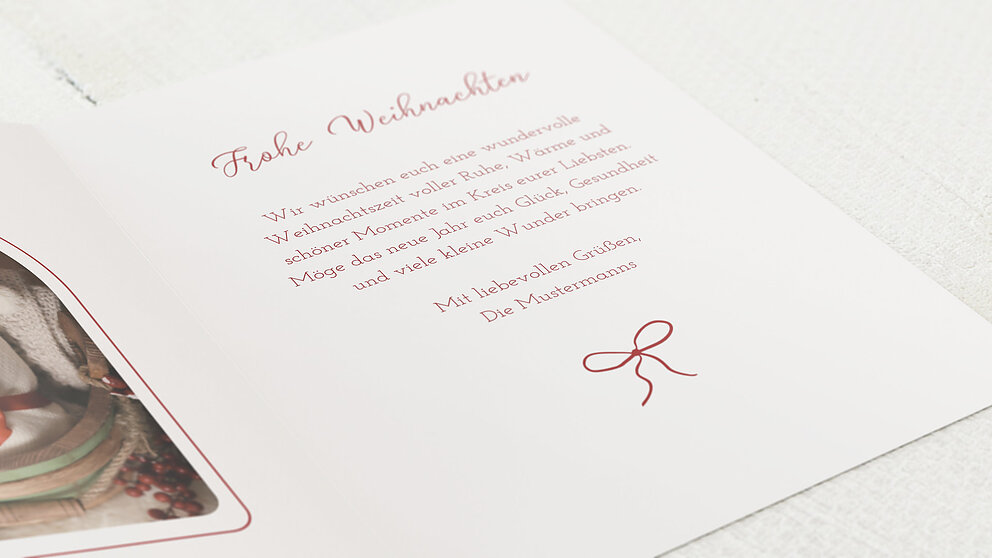 Frohe Weihnachten
Wir wünschen euch eine wundervolle
Weihnachtszeit voller Ruhe, Wärme und
schöner Momente im Kreis eurer Liebsten.
Möge das neue Jahr euch Glück, Gesundheit
und viele kleine Wunder bringen.
Mit liebevollen Grüßen,
Die Mustermanns